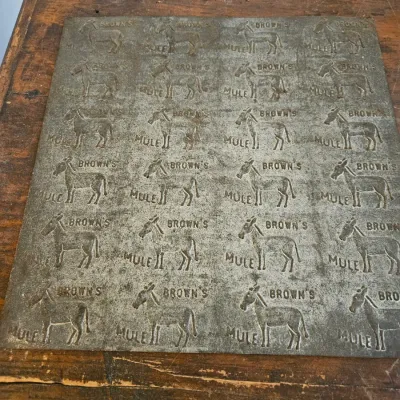 BROWN'S
MULE MULE MULE
BROWN'S BROWN'S
MULE MULE MULE
BROWN'S BROWN'S BROWN'S
MULE MULE MULE MULE
BROWN'S BROWN'S BROWN'S BROWN'S
MULE MULE MULE MULE
BROWN'S BROWN'S BROWN'S BROWN'S
MULE MULE MULE MULE
BROWN'S BROWN'S BROWN'S BROWN'S
MULE MULE MULE MULE